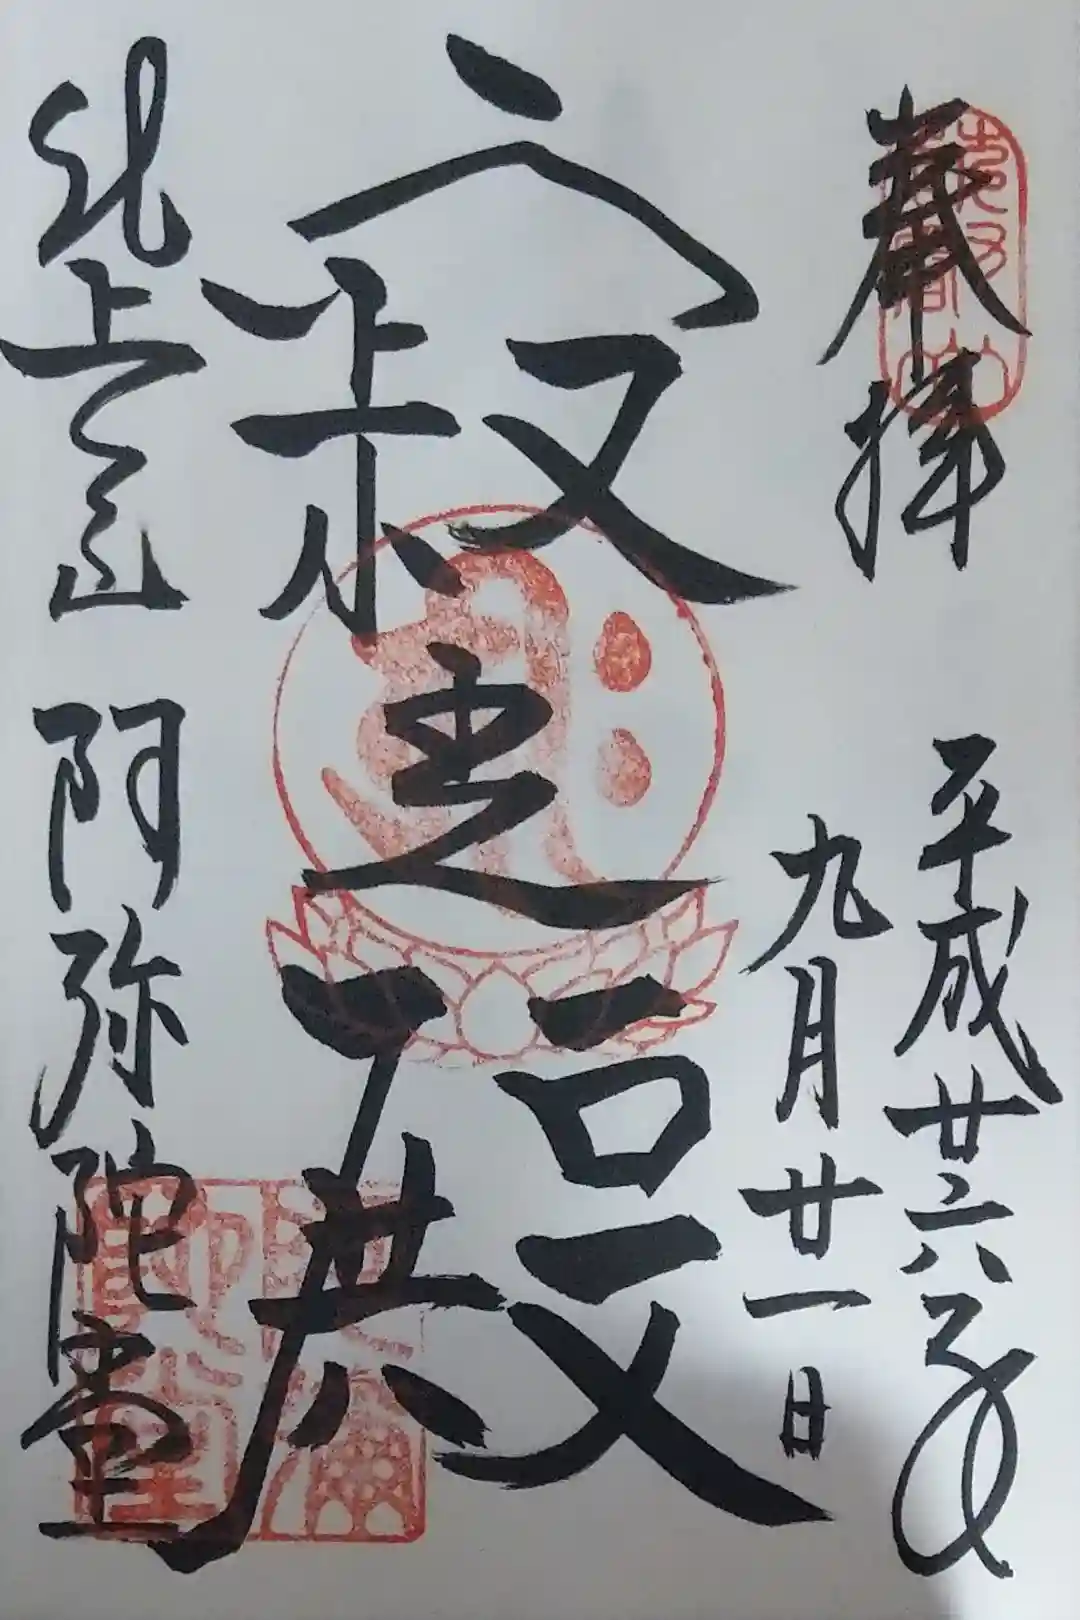 奉拝
平成廿六年
九月廿一日
寂 殿
比叡山 阿弥陀堂